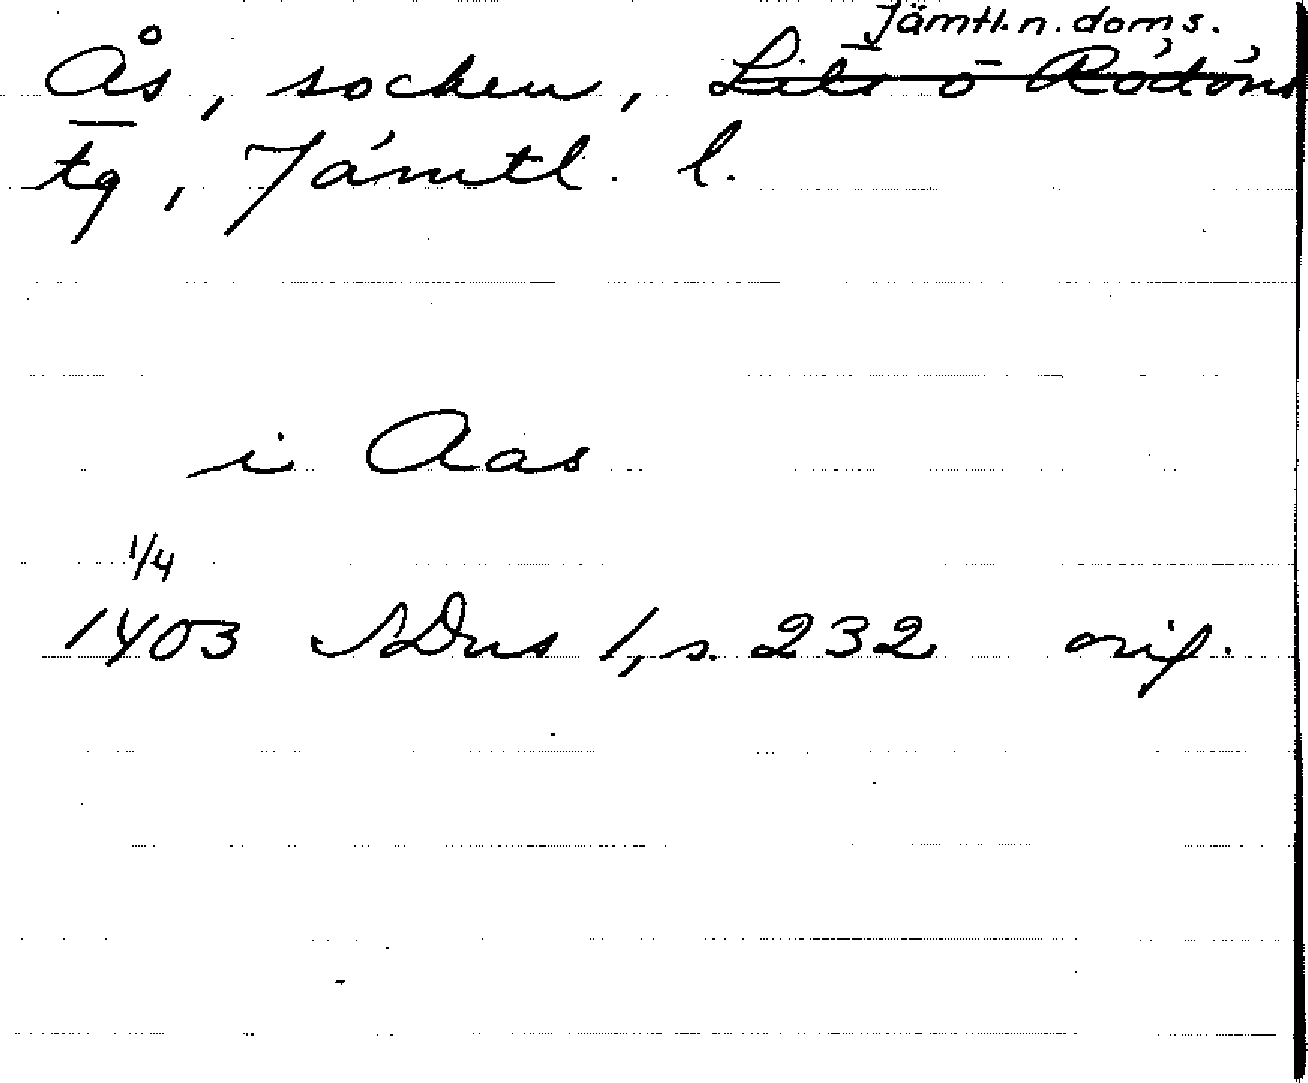 Jämtl. n. doms.
Ås, socken, Lits o Rödöns
tg, Jämtl. l.
i Aas
1/4
1403 SDns 1, s. 232 orig.